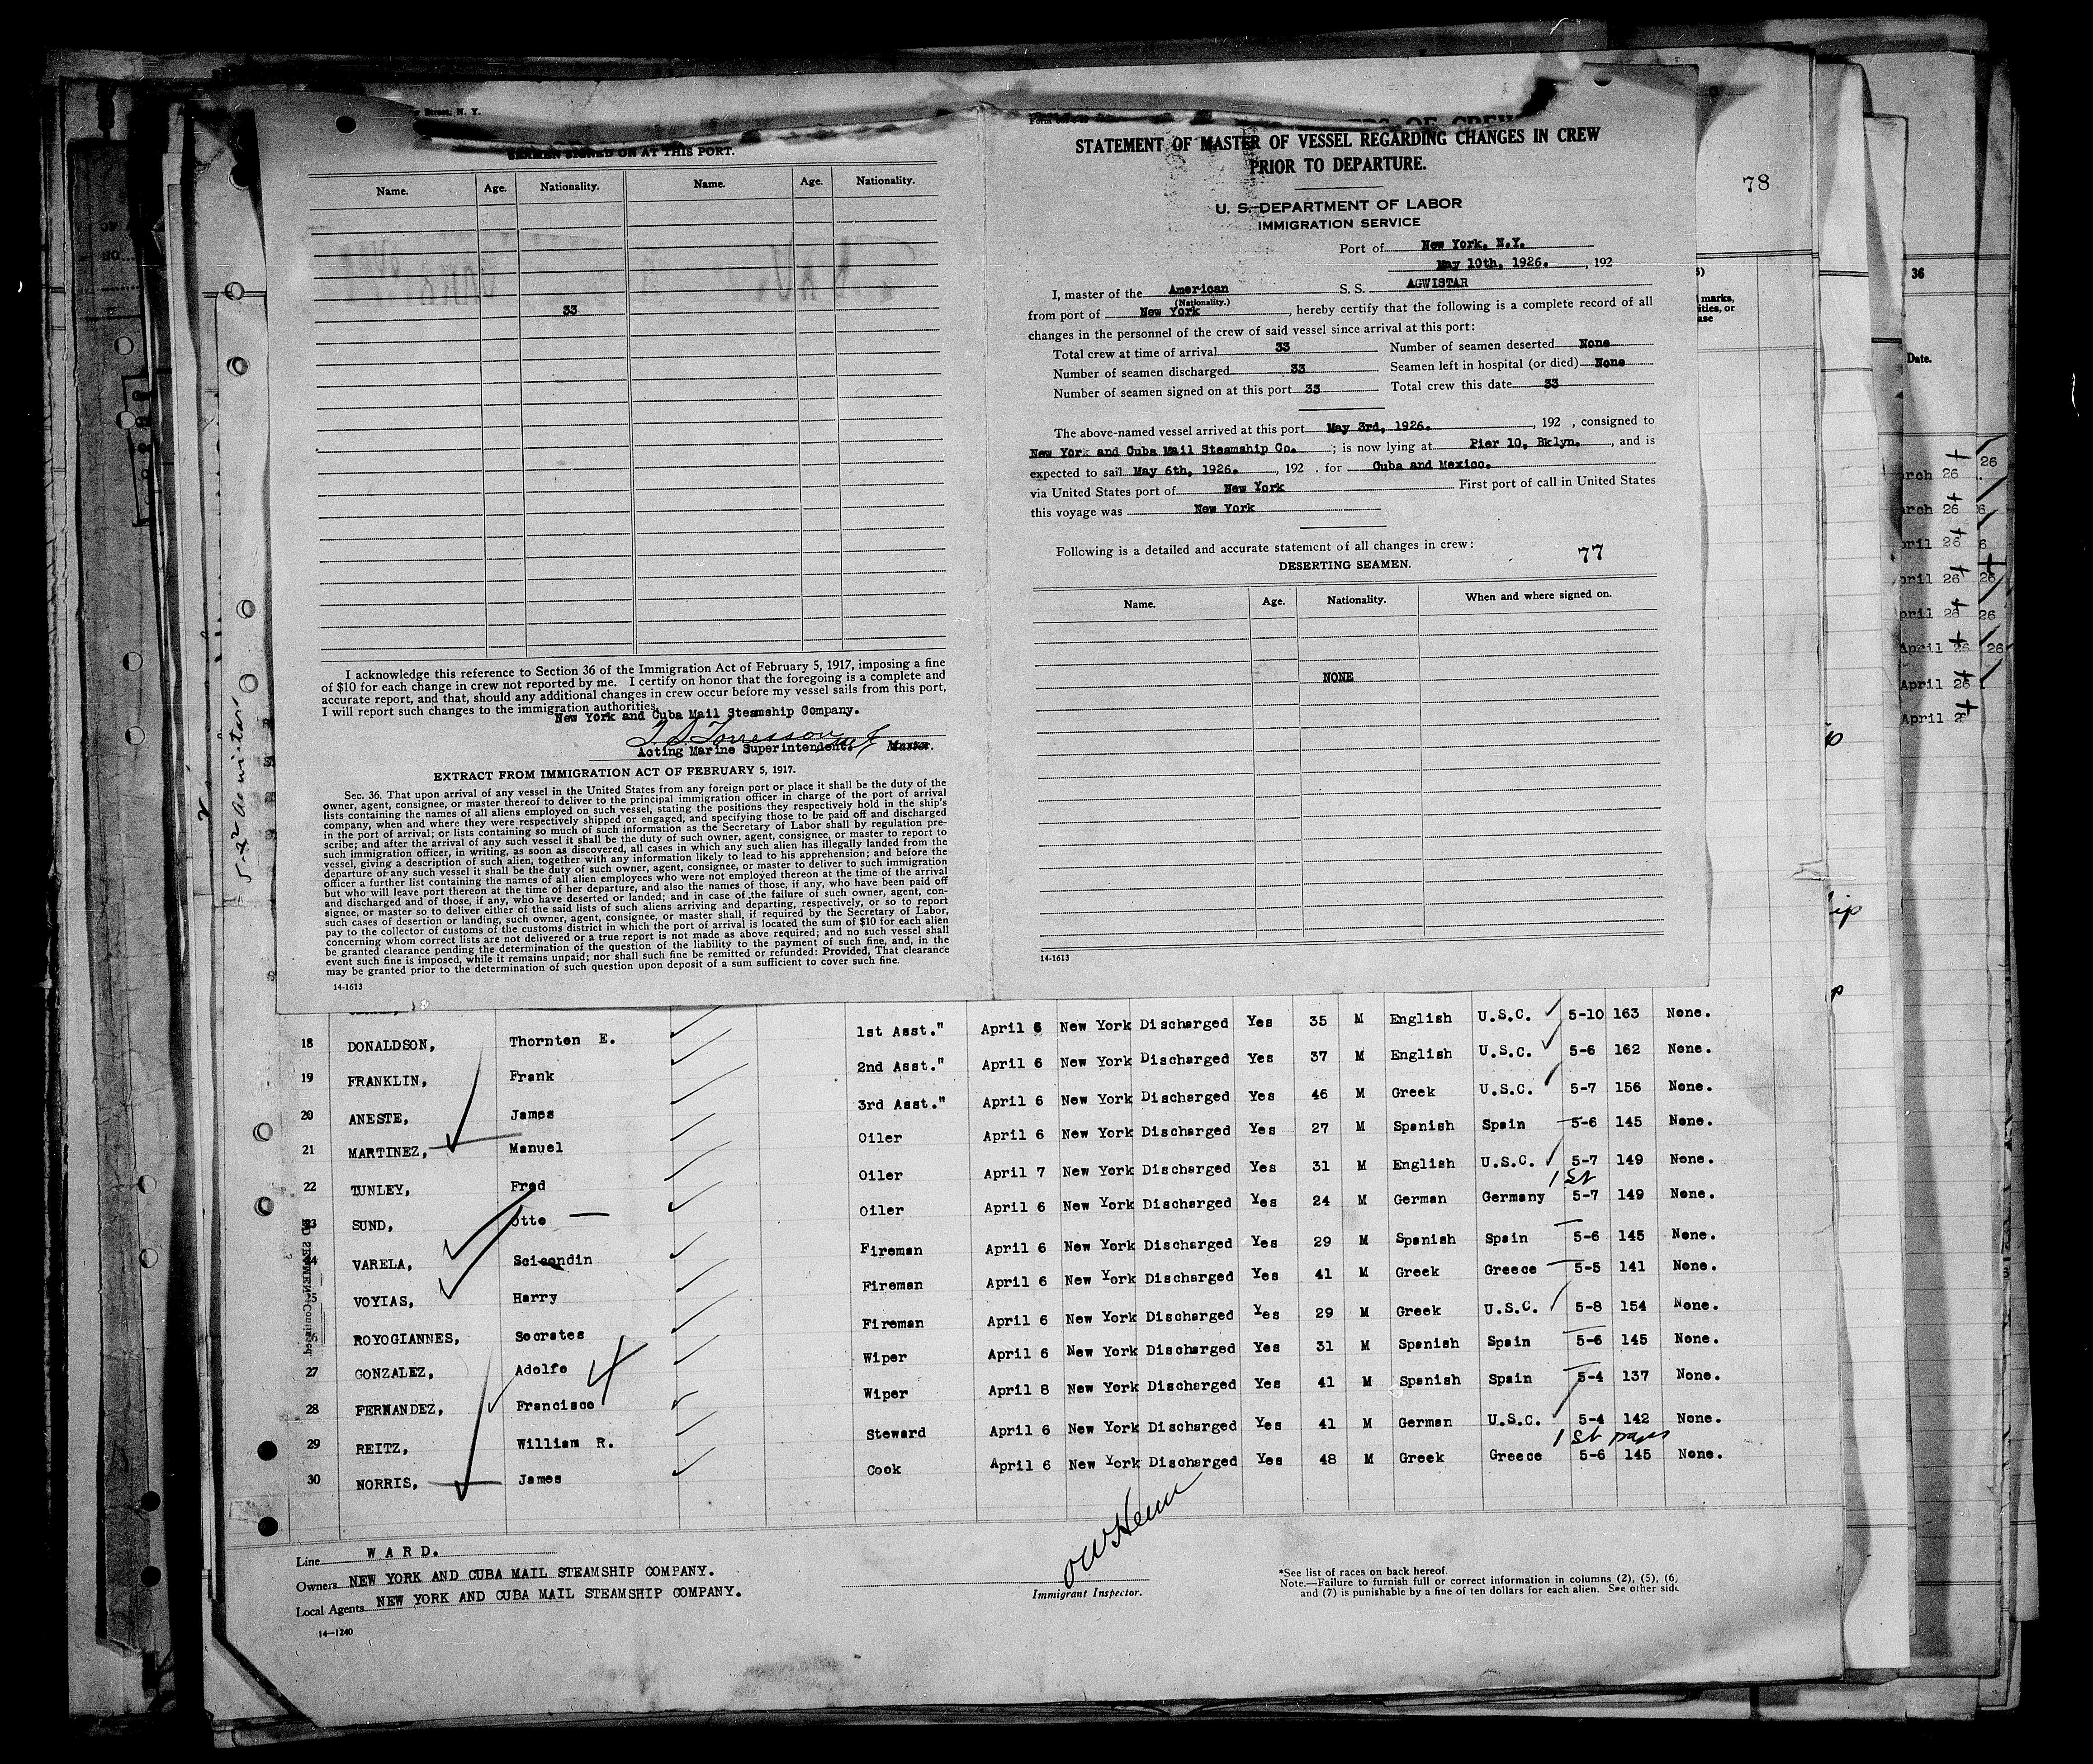 SEAMEN SIGNED ON AT THIS PORT.
Name. Age. Nationality. Name. Age. Nationality.
33
I acknowledge this reference to Section 36 of the Immigration Act of February 5, 1917, imposing a fine
of $10 for each change in crew not reported by me. I certify on honor that the foregoing is a complete and
accurate report, and that, should any additional changes in crew occur before my vessel sails from this port,
I will report such changes to the immigration authorities.
New York and Cuba Mail Steamship Company.
Acting Marine Superintendent. Master.
EXTRACT FROM IMMIGRATION ACT OF FEBRUARY 5, 1917.
Sec. 36. That upon arrival of any vessel in the United States from any foreign port or place it shall be the duty of the
owner, agent, consignee, or master thereof to deliver to the principal immigration officer in charge of the port of arrival
lists containing the names of all aliens employed on such vessel, stating the positions they respectively hold in the ship's
company, when and where they were respectively shipped or engaged, and specifying those to be paid off and discharged
in the port of arrival; or lists containing so much of such information as the Secretary of Labor shall by regulation pre-
scribe; and after the arrival of any such vessel it shall be the duty of such owner, agent, consignee, or master to report to
such immigration officer, in writing, as soon as discovered, all cases in which any such alien has illegally landed from the
vessel, giving a description of such alien, together with any information likely to lead to his apprehension; and before the
departure of any such vessel it shall be the duty of such owner, agent, consignee, or master to deliver to such immigration
officer a further list containing the names of all alien employees who were not employed thereon at the time of the arrival
but who will leave port thereon at the time of her departure, and also the names of those, if any, who have been paid off
and discharged and of those, if any, who have deserted or landed; and in case of the failure of such owner, agent, con-
signee, or master so to deliver either of the said lists of such aliens arriving and departing, respectively, or so to report
such cases of desertion or landing, such owner, agent, consignee, or master shall, if required by the Secretary of Labor,
pay to the collector of customs of the customs district in which the port of arrival is located the sum of $10 for each alien
concerning whom correct lists are not delivered or a true report is not made as above required; and no such vessel shall
be granted clearance pending the determination of the question of the liability to the payment of such fine, and, in the
event such fine is imposed, while it remains unpaid; nor shall such fine be remitted or refunded: Provided, That clearance
may be granted prior to the determination of such question upon deposit of a sum sufficient to cover such fine.
14-1613
STATEMENT OF MASTER OF VESSEL REGARDING CHANGES IN CREW
PRIOR TO DEPARTURE.
U. S. DEPARTMENT OF LABOR
IMMIGRATION SERVICE
Port of New York, N.Y.
May 10th, 1926. , 192
I, master of the American S. S. AGWISTAR
(Nationality.)
from port of New York , hereby certify that the following is a complete record of all
changes in the personnel of the crew of said vessel since arrival at this port:
Total crew at time of arrival 33 Number of seamen deserted None
Number of seamen discharged 33 Seamen left in hospital (or died) None
Number of seamen signed on at this port 33 Total crew this date 33
The above-named vessel arrived at this port May 3rd, 1926. , 192 , consigned to
New York and Cuba Mail Steamship Co. ; is now lying at Pier 10, Bklyn. , and is
expected to sail May 6th, 1926. , 192 . for Cuba and Mexico.
via United States port of New York First port of call in United States
this voyage was New York
Following is a detailed and accurate statement of all changes in crew: 77
DESERTING SEAMEN.
Name. Age. Nationality. When and where signed on.
NONE
14-1613
78
marks,
36
Date.
18 DONALDSON, Thornton E. 1st Asst." April 6 New York Discharged Yes 35 M English U.S.C. 5-10 163 None.
19 FRANKLIN, Frank 2nd Asst." April 6 New York Discharged Yes 37 M English U.S.C. 5-6 162 None.
20 ANESTE, James 3rd Asst." April 6 New York Discharged Yes 46 M Greek U.S.C. 5-7 156 None.
21 MARTINEZ, Manuel Oiler April 6 New York Discharged Yes 27 M Spanish Spain 5-6 145 None.
22 TUNLEY, Fred Oiler April 7 New York Discharged Yes 31 M English U.S.C. 5-7 149 None.
23 SUND, Otto Oiler April 6 New York Discharged Yes 24 M German Germany 5-7 149 None.
24 VARELA, Scicandin Fireman April 6 New York Discharged Yes 29 M Spanish Spain 5-6 145 None.
5 VOYIAS, Harry Fireman April 6 New York Discharged Yes 41 M Greek Greece 5-5 141 None.
6 ROYOGIANNES, Socrates Fireman April 6 New York Discharged Yes 29 M Greek U.S.C. 5-8 154 None.
27 GONZALEZ, Adolfo Wiper April 6 New York Discharged Yes 31 M Spanish Spain 5-6 145 None.
28 FERNANDEZ, Francisco Wiper April 8 New York Discharged Yes 41 M Spanish Spain 5-4 137 None.
29 REITZ, William R. Steward April 6 New York Discharged Yes 41 M German U.S.C. 5-4 142 None.
30 NORRIS, James Cook April 6 New York Discharged Yes 48 M Greek Greece 5-6 145 None.
Line WARD.
Owners NEW YORK AND CUBA MAIL STEAMSHIP COMPANY.
Local Agents NEW YORK AND CUBA MAIL STEAMSHIP COMPANY.
14-1240
Immigrant Inspector.
*See list of races on back hereof.
Note.—Failure to furnish full or correct information in columns (2), (5), (6)
and (7) is punishable by a fine of ten dollars for each alien. See other side